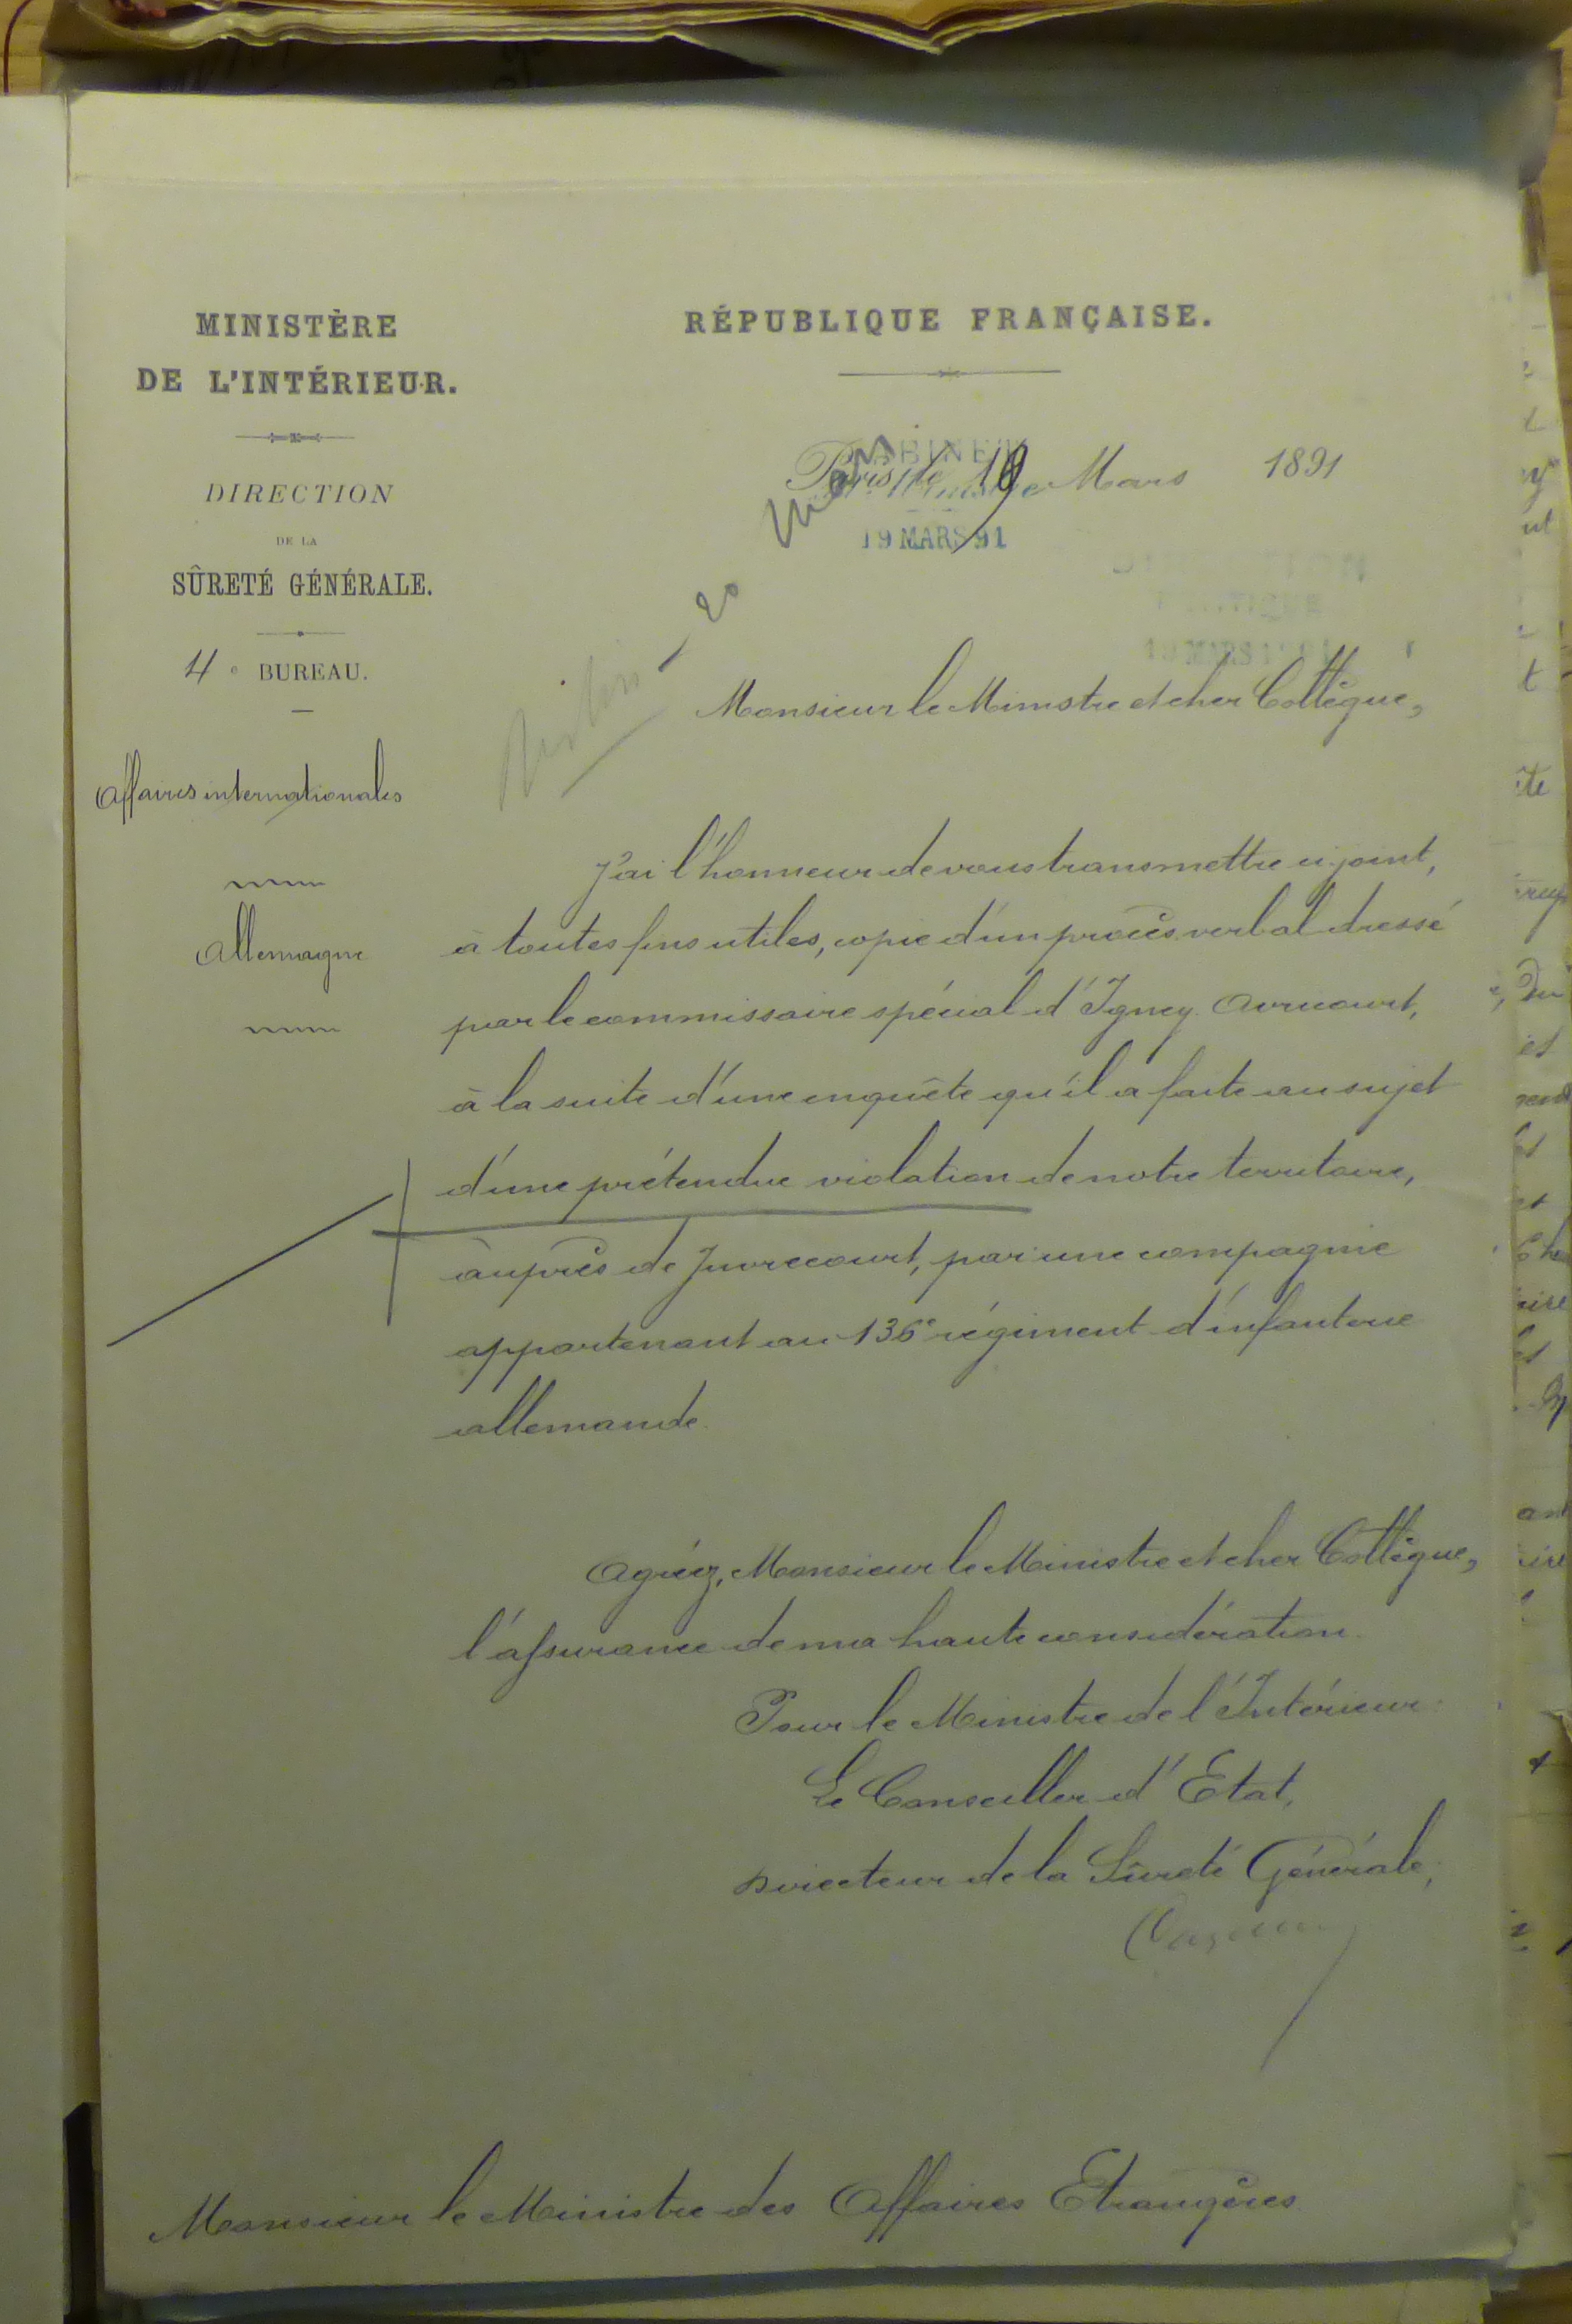 MINISTÈRE
DE L'INTÉRIEUR.
DIRECTION
DE LA
SÛRETÉ GÉNÉRALE.
4e BUREAU.
Affaires internationales
Allemagne
RÉPUBLIQUE FRANÇAISE.
Paris, le 19 Mars 1891
CABINET
19 MARS 91
20
19 MARS 1891
Monsieur le Ministre et cher Collègue,
J'ai l'honneur de vous transmettre ci-joint,
à toutes fins utiles, copie d'un procès-verbal dressé
par le commissaire spécial d'Igney-Avricourt,
à la suite d'une enquête qu'il a faite au sujet
d'une prétendue violation de notre territoire,
auprès de Juvrecourt, par une compagnie
appartenant au 136e régiment d'infanterie
allemande.
Agréez, Monsieur le Ministre et cher Collègue,
l'assurance de ma haute considération.
Pour le Ministre de l'Intérieur:
Le Conseiller d'Etat,
Directeur de la Sûreté Générale,
Monsieur le Ministre des Affaires Etrangères